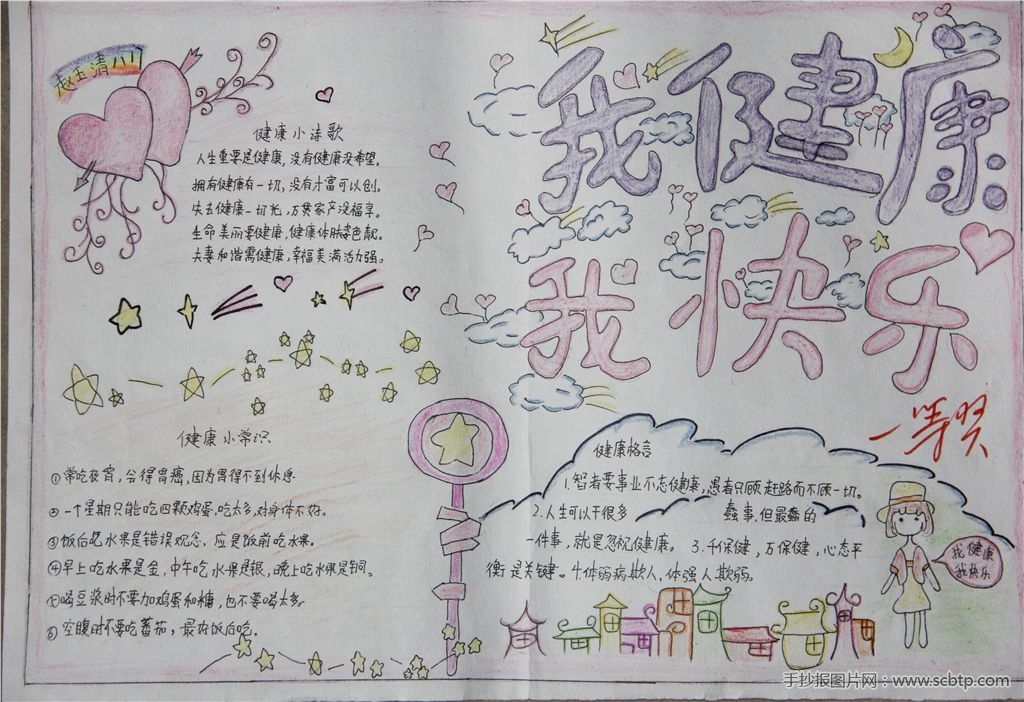 赵玉清八(1)
健康小诗歌
人生重要是健康,没有健康没希望。
拥有健康有一切,没有才富可以创。
失去健康一切光,万贯家产没福享。
生命美丽要健康,健康体肤姿色靓。
夫妻和谐需健康,幸福美满活力强。
健康小常识
①常吃夜宵,会得胃癌,因为胃得不到休息
②一个星期只能吃四颗鸡蛋,吃太多,对身体不好。
③饭后吃水果是错误观念,应是饭前吃水果。
④早上吃水果是金,中午吃水果是银,晚上吃水果是铜。
⑤喝豆浆时不要加鸡蛋和糖,也不要喝太多
⑥空腹时不要吃蕃茄,最好饭后吃。
我健康
我快乐
一等奖
健康格言
1.智者要事业不忘健康,愚者只顾赶路而不顾一切。
2.人生可以干很多蠢事,但最蠢的
一件事,就是忽视健康。 3.千保健,万保健,心态平
衡是关键。4.体弱病欺人,体强人欺弱。
我健康
我快乐
手抄报图片网:www.scbtp.com